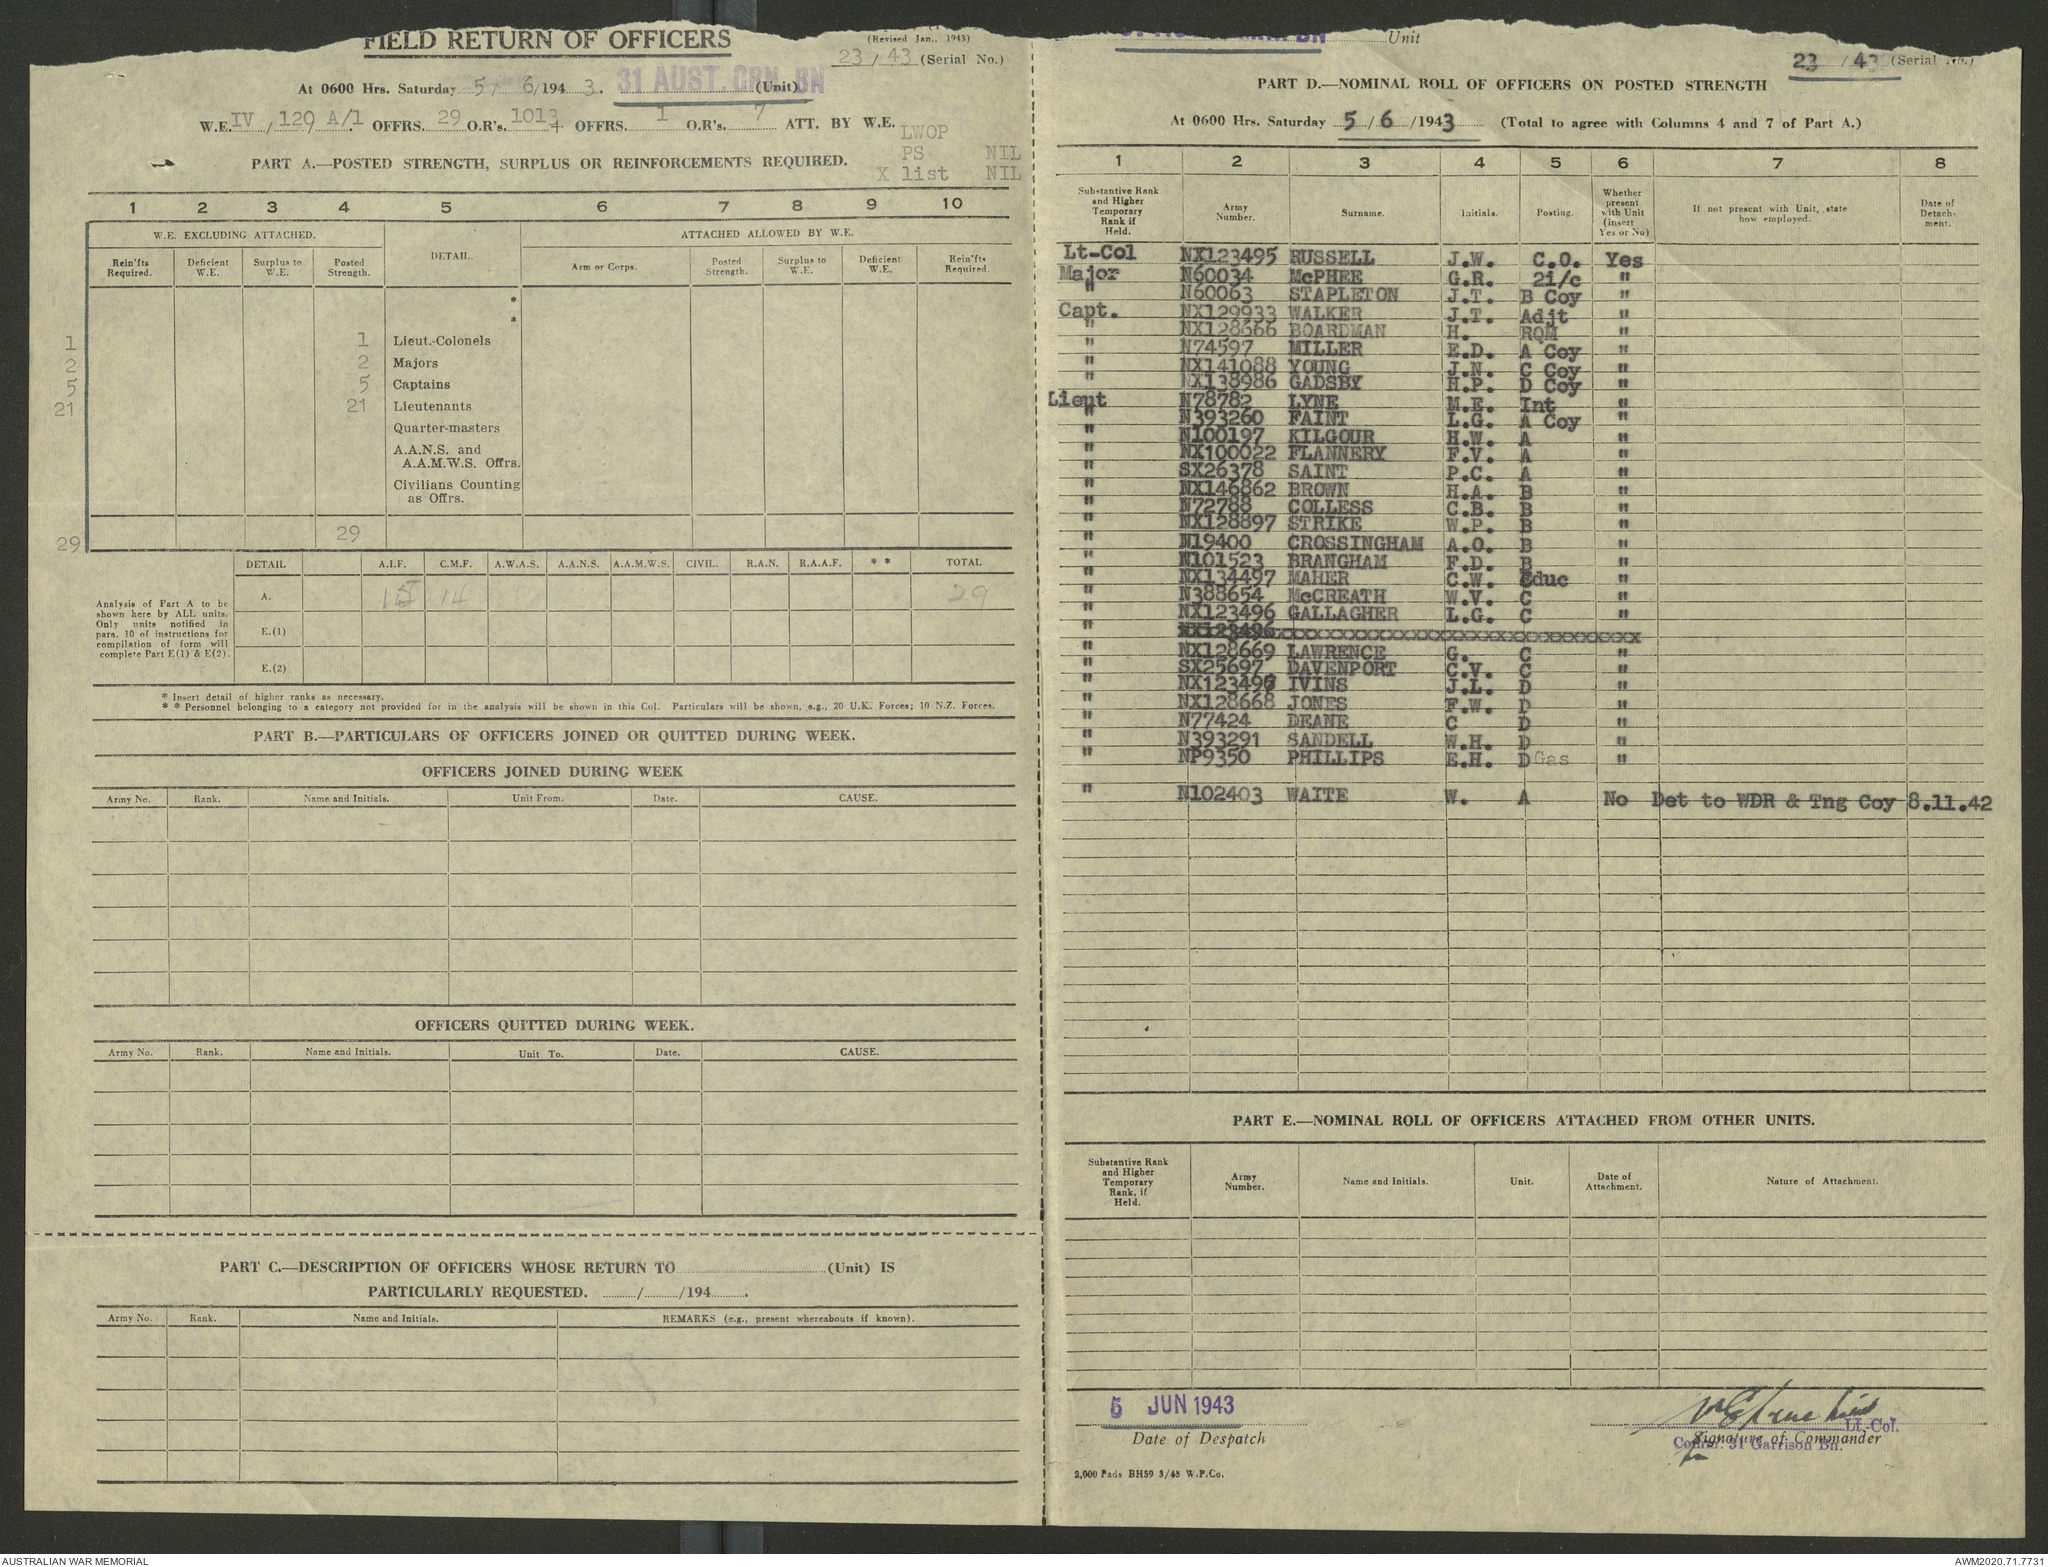 FIELD RETURN OF OFFICERS
(Revised Jan., 1943)
23 / 43 (Serial No.)
At 0600 Hrs. Saturday 5 / 6 /1943. 31 AUST. GRN. BN (Unit)
W.E. IV / 129 A/1 OFFRS. 29 O.R's. 1013 + OFFRS. 1 O.R's. 7 ATT. BY W.E.
LWOP
PS NIL
X list NIL
PART A.—POSTED STRENGTH, SURPLUS OR REINFORCEMENTS REQUIRED.
1 2 3 4 5 6 7 8 9 10
W.E. EXCLUDING ATTACHED. DETAIL. ATTACHED ALLOWED BY W.E.
Rein'fts Required. Deficient W.E. Surplus to W.E. Posted Strength. Arm or Corps. Posted Strength. Surplus to W.E. Deficient W.E. Rein'fts Required.
*
*
1 1 Lieut.-Colonels
2 2 Majors
5 5 Captains
21 21 Lieutenants
Quarter-masters
A.A.N.S. and
A.A.M.W.S. Offrs.
Civilians Counting
as Offrs.
29 29
DETAIL A.I.F. C.M.F. A.W.A.S. A.A.N.S. A.A.M.W.S. CIVIL. R.A.N. R.A.A.F. * * TOTAL
Analysis of Part A to be
shown here by ALL units.
Only units notified in
para. 10 of instructions for
compilation of form will
complete Part E(1) & E(2).
A. 15 14 29
E.(1)
E.(2)
* Insert detail of higher ranks as necessary.
* * Personnel belonging to a category not provided for in the analysis will be shown in this Col. Particulars will be shown, e.g., 20 U.K. Forces; 10 N.Z. Forces.
PART B.—PARTICULARS OF OFFICERS JOINED OR QUITTED DURING WEEK.
OFFICERS JOINED DURING WEEK
Army No. Rank. Name and Initials. Unit From. Date. CAUSE.
OFFICERS QUITTED DURING WEEK.
Army No. Rank. Name and Initials. Unit To. Date. CAUSE.
PART C.—DESCRIPTION OF OFFICERS WHOSE RETURN TO (Unit) IS
PARTICULARLY REQUESTED. / /194 .
Army No. Rank. Name and Initials. REMARKS (e.g., present whereabouts if known).
BN Unit
23 / 43 (Serial No.)
PART D.—NOMINAL ROLL OF OFFICERS ON POSTED STRENGTH
At 0600 Hrs. Saturday 5 / 6 /1943 (Total to agree with Columns 4 and 7 of Part A.)
1 2 3 4 5 6 7 8
Substantive Rank and Higher Temporary Rank if Held. Army Number. Surname. Initials. Posting. Whether present with Unit (insert Yes or No) If not present with Unit, state how employed. Date of Detach-ment.
Lt-Col NX123495 RUSSELL J.W. C.O. Yes
Major N60034 McPHEE G.R. 2i/c "
" N60063 STAPLETON J.T. B Coy "
Capt. NX129933 WALKER J.T. Adjt "
" NX128666 BOARDMAN H. RQM "
" N74597 MILLER E.D. A Coy "
" NX141088 YOUNG J.N. C Coy "
" NX138986 GADSBY H.P. D Coy "
Lieut N78782 LYNE M.E. Int "
" N393260 FAINT L.G. A Coy "
" N100197 KILGOUR H.W. A "
" NX100022 FLANNERY F.V. A "
" SX26378 SAINT P.C. A "
" NX146862 BROWN H.A. B "
" N72788 COLLESS C.B. B "
" NX128897 STRIKE W.P. B "
" N19400 CROSSINGHAM A.O. B "
" N101523 BRANGHAM F.D. B "
" NX134497 MAHER C.W. Educ "
" N388654 McCREATH W.V. C "
" NX123496 GALLAGHER L.G. C "
" NX123496xxxxxxxxxxxxxxxxxxxxxxxxxxxxxx
" NX128669 LAWRENCE G. C "
" SX25697 DAVENPORT C.V. C "
" NX123497 IVINS J.L. D "
" NX128668 JONES F.W. D "
" N77424 DEANE C D "
" N393291 SANDELL W.H. D "
" NP9350 PHILLIPS E.H. D Gas "
" N102403 WAITE W. A No Det to WDR & Tng Coy 8.11.42
PART E.—NOMINAL ROLL OF OFFICERS ATTACHED FROM OTHER UNITS.
Substantive Rank and Higher Temporary Rank, if Held. Army Number. Name and Initials. Unit. Date of Attachment. Nature of Attachment.
5 JUN 1943
Date of Despatch
Lt.-Col.
Signature of Commander
Comm. 31 Garrison Bn.
2,000 Pads BH59 3/43 W.P.Co.
AUSTRALIAN WAR MEMORIAL
AWM2020.71.7731